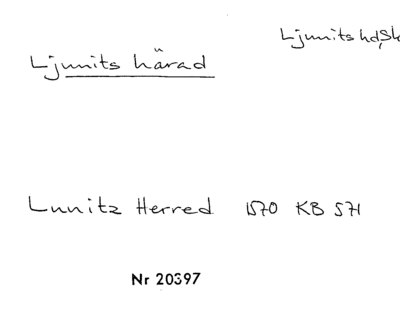 Ljunits hd, Sk
Ljunits härad
Lunitz Herred 1570 KB 571
Nr 20397